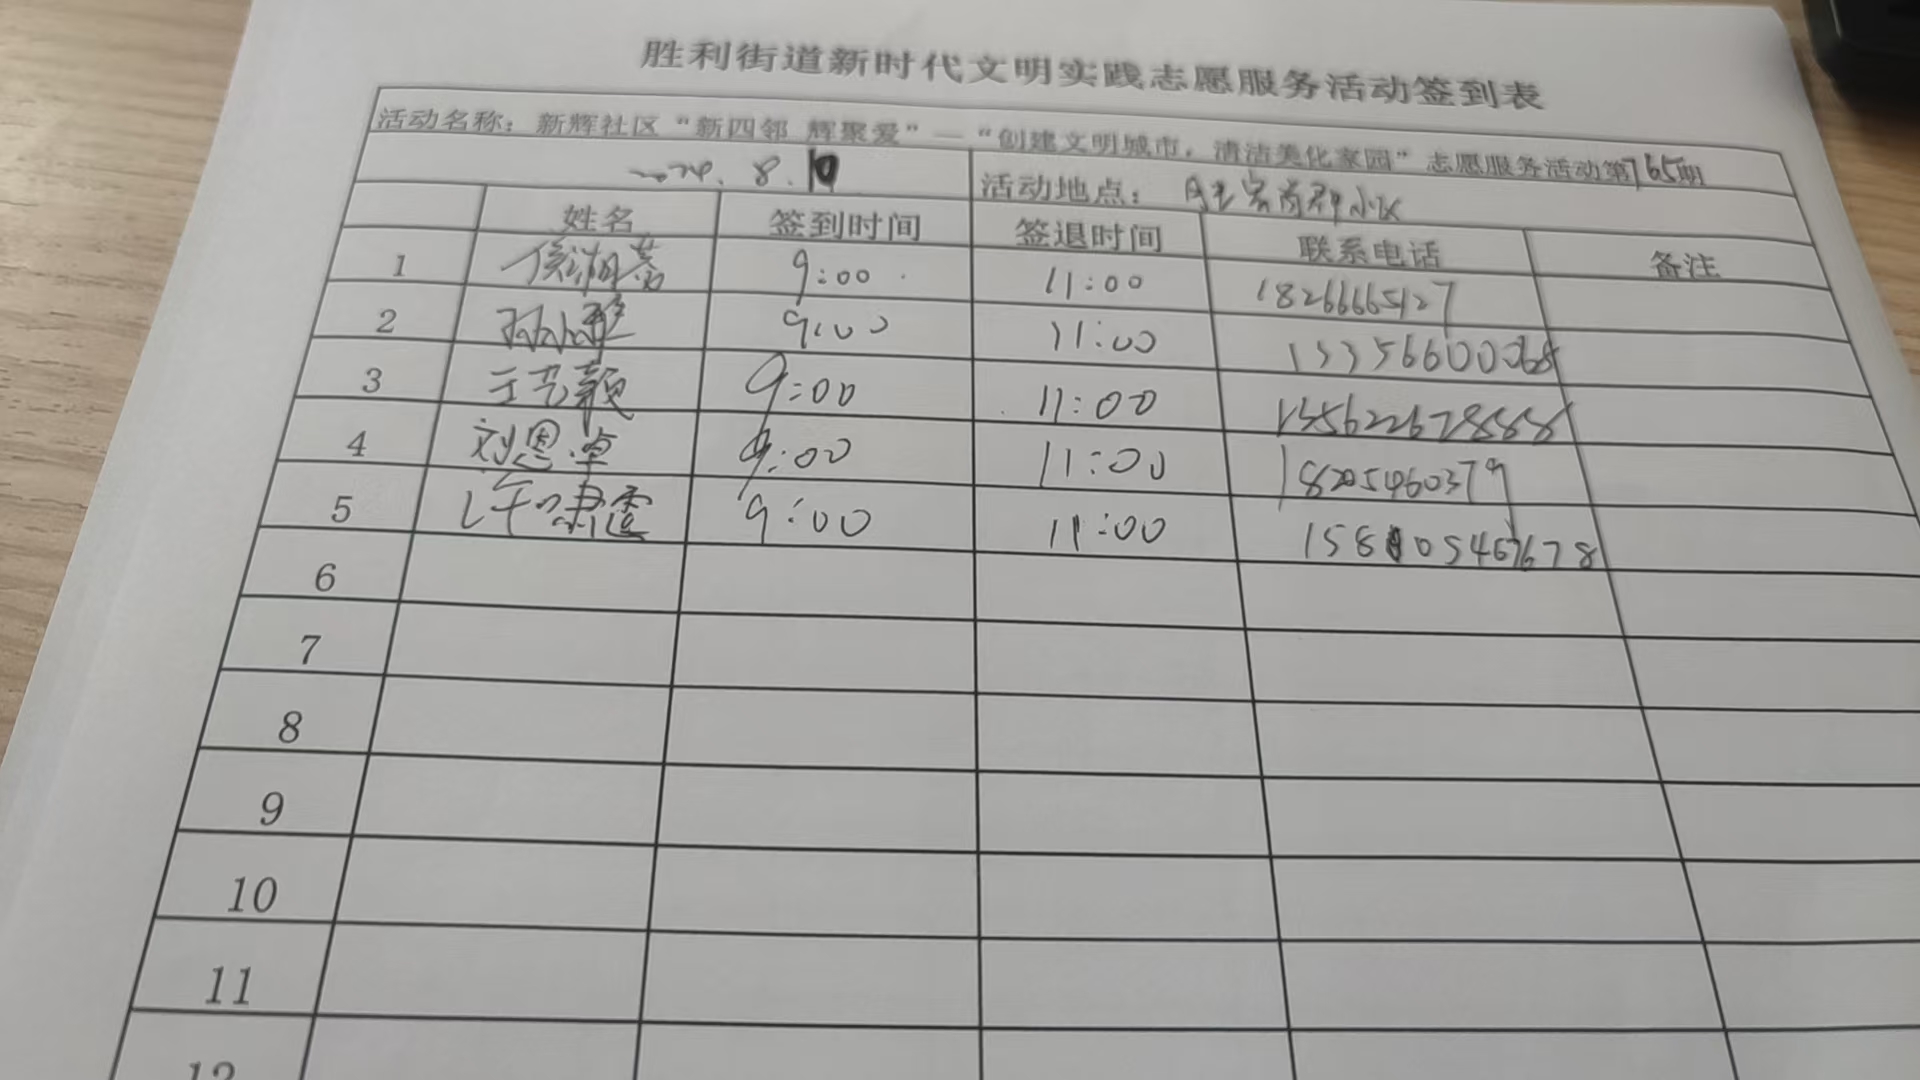 胜利街道新时代文明实践志愿服务活动签到表
活动名称：新辉社区“新四邻 辉聚爱”—“创建文明城市，清洁美化家园”志愿服务活动第765期
2024.8.10 活动地点： 小区
姓名 签到时间 签退时间 联系电话 备注
1 9:00 11:00 1826665127
2 9:00 11:00
3 于艺颖 9:00 11:00 13562267888
4 刘恩卓 9:00 11:00 18205460379
5 许啸霞 9:00 11:00
6
7
8
9
10
11
12